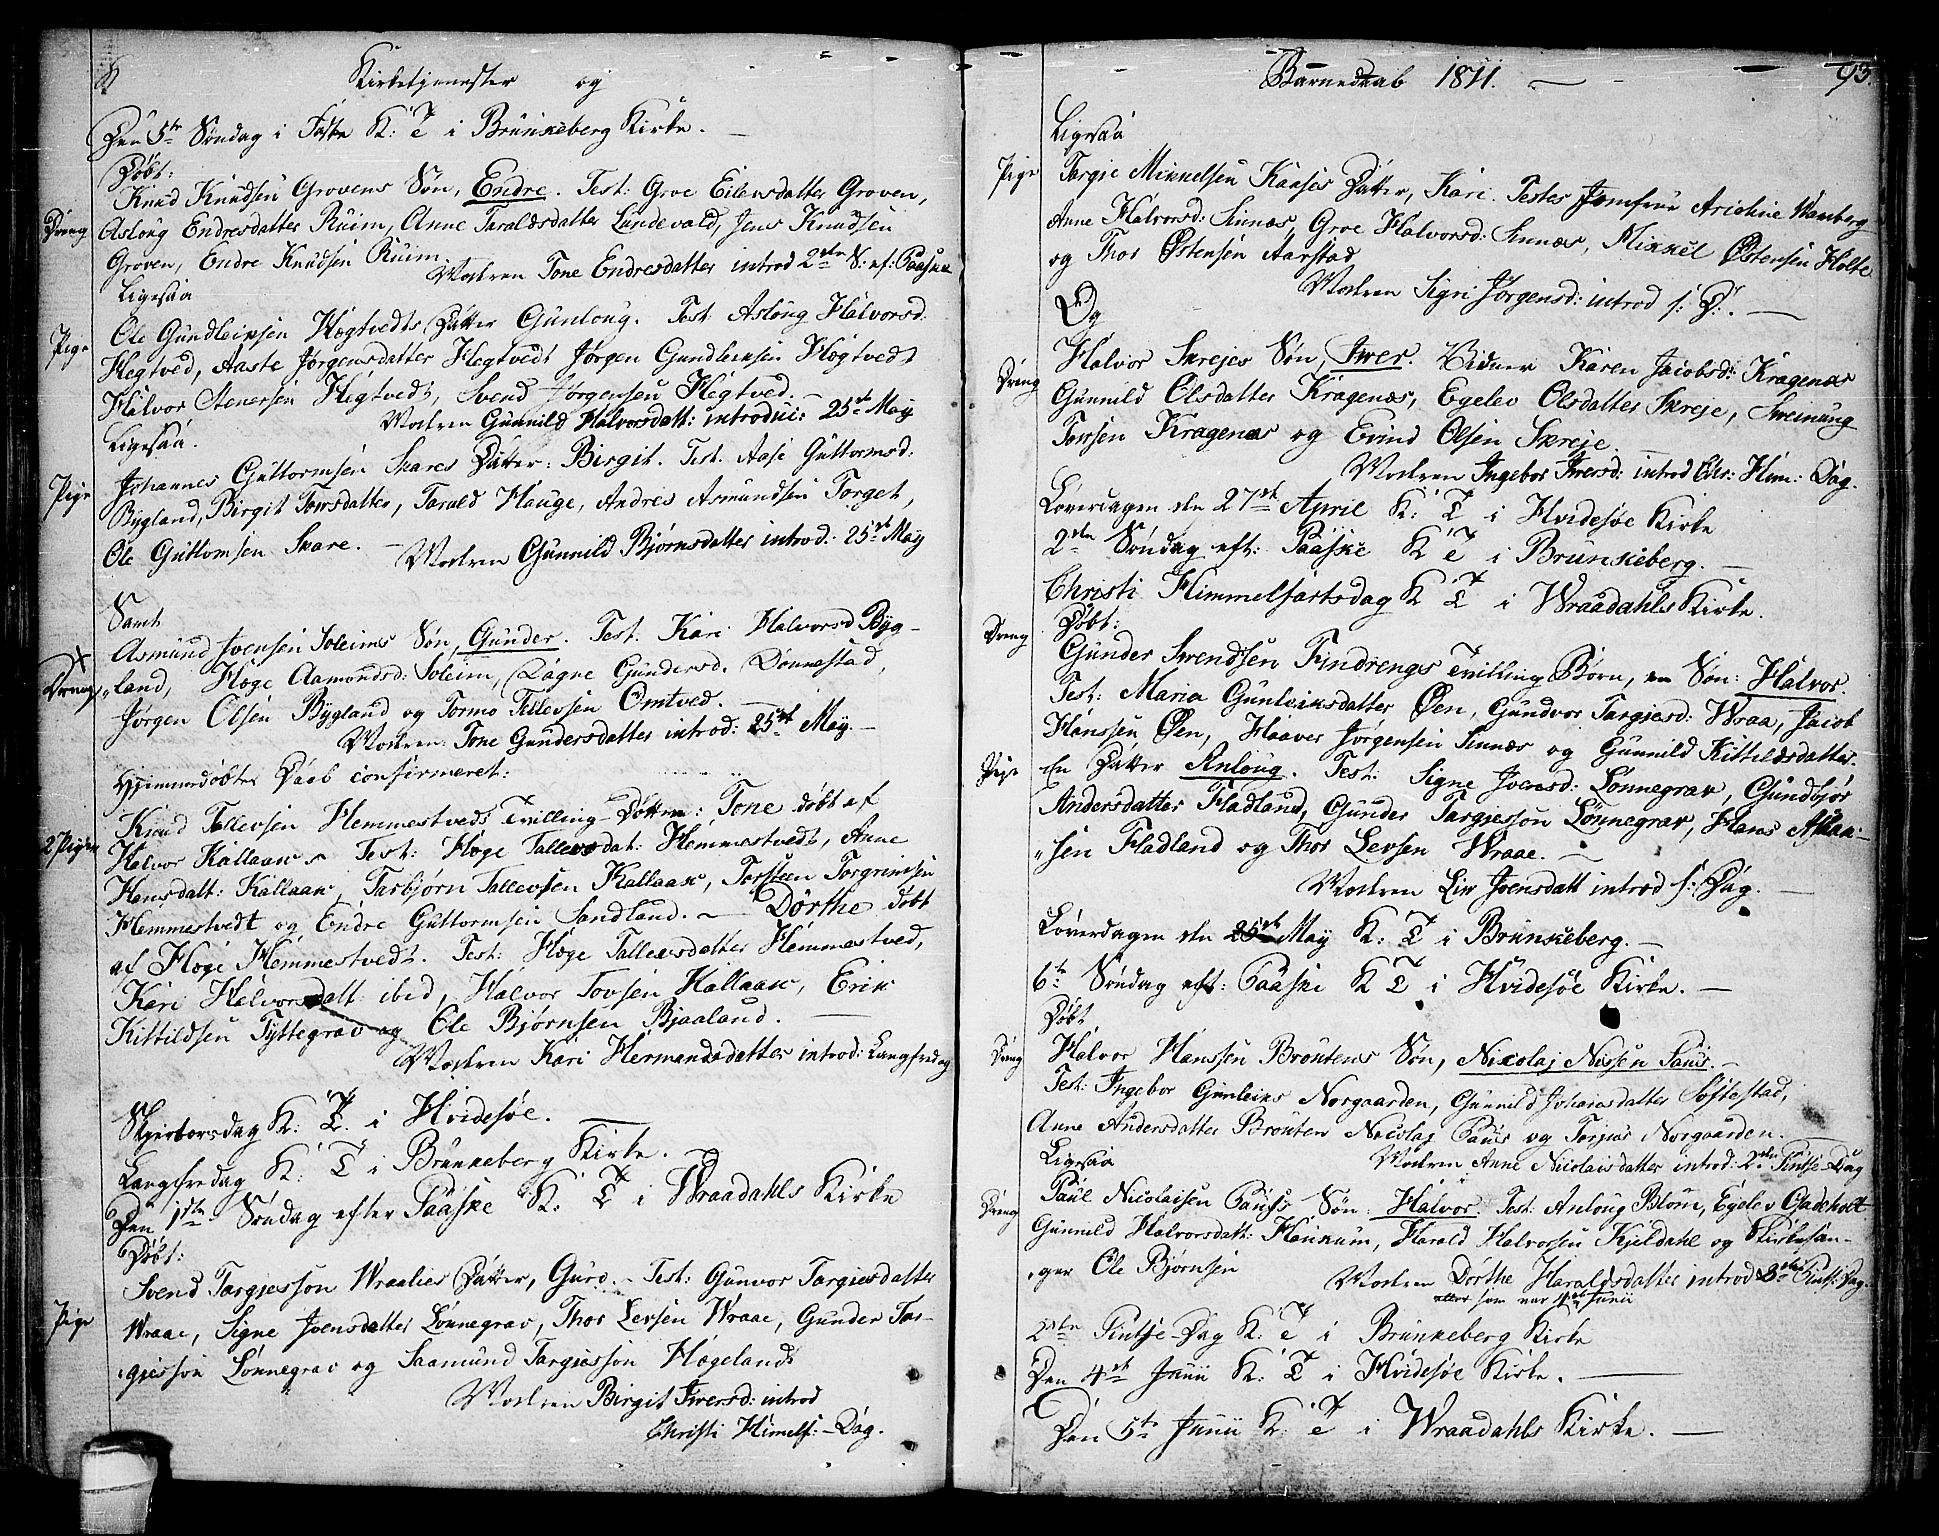 Kirketjenester og
Den 5te Søndag i Faste K: T i Brunkeberg Kirke.
Døbt:
Knud Knudsen Grovens Søn, Endre. Test: Groe Eilevsdatter Groven,
Dreng
Asloug Endresdatter Ruim, Anne Taraldsdatter Lundevald, Jens Knudsen
Groven, Endre Knudsen Ruim.
Modren Tone Endresdatter introd 2den S: ef: Paaske
Ligesaa
Ole Gundleiksen Hegtvedts Datter Gunloug. Test: Asloug Halvorsd.
Pige
Hegtved, Aaste Jørgensdatter Hegtvedt Jørgen Gundleiksen Hegtvedt
Halvor Stenersen Hegtvedt, Svend Jørgensen Hegtved.
Modren Gunnild Halvorsdatt: introduc: 25de May
Ligesaa.
Johannes Guttormsen Skares Datter: Birgit. Test. Aase Guttormsd:
Pige
Bygland, Birgit Torsdatter, Tarald Hauge, Andres Asmundsen Torget,
Ole Guttomsen Skare.
Modren Gunnild Bjørnsdatter introd: 25de May
Samt
Asmund Joensen Soleims Søn, Gunder. Test. Kari Halvorsd Byg-
Dreng
land, Høge Aamondsd: Soleim, Ragne Gundersd. Dønnestad,
Jørgen Olsen Bygland og Tormo Tellevsen Omtved.
Modren: Tone Gundersdatter introd: 25de May
Hjemmedøbtes Daab confirmeret:
Knud Tallevsen Hemmestveds Tvilling-Døttre: Tone døbt af
2 Piger
Halvor Kallaak Test: Høge Tallevsdat: Hemmestvedt, Anne
Hansdatt: Kallaak, Tarbjørn Tallevsen Kallaak, Torsteen Torgrimsen
Hemmestvedt og Endre Guttormsen Sandland. Dørthe døbt
af Høge Hemmestvedt. Test: Høge Tallevsdatter Hemmestved,
Kari Halvorsdatt ibid, Halvor Tovsen Kallaak, Erik
Kittildsen Tyttegrav og Ole Bjørnsen Bjaaland.
Modren Kari Hermandsdatter introd: Langfredag
Skjertorsdag K: T. i Hvidesøe.
Langfredag K: T i Brunkeberg Kirke.
Den 1ste Søndag efter Paaske K: T i Wraadahls Kirke
Døbt:
Svend Targjesson Wraalies Datter, Guro. Test: Gunvor Targiesdatter
Pige
Wraae, Signe Joensdatter Lønnegrav, Thor Levsen Wraae, Gunder Tar-
gjesson Lønnegrav og Saamund Targiesson Høgelandt
Modren Birgit Iversd: introd
Christi Himelf:-Dag.
Barnedaab 1811.
93.
Ligesaa
Pige
Torgie Mikkelsen Kaases Datter, Kari. Testes Jomfrue Aristine Wamberg
Anne Halvorsd: Sinnæs, Groe Halvorsd: Sinnæs, Mikkel Østensen Holte
og Thor Østensen Aarstad
Modren Sigri Jørgensd: introd s: D:.
Og
Halvor Skrejes Søn, Iver. Vidner Karen Jacobsd: Kragenæs
Dreng
Gunnild Olsdatter Kragenæs, Egelev Olsdatter Skreje, Sveinung
Torsen Kragenæs og Evind Olsen Skreje.
Modren Ingebor Iversd: introd Chr: Him: Dag.
Løverdagen den 27de April K: T i Hvidesøe Kirke
2den Søndag eft: Paaske K T i Brunkeberg.
Christi Himmelfartsdag K T i Wraadahls Kirke.
Døbt:
Dreng
Gunder Svendsen Findrengs Tvilling Børn, en Søn: Halvor.
Test: Maria Gunleiksdatter Øen, Gundvor Targjesd: Wraa, Jacob
Hanssen Øen, Haaver Jørgensen Sinnæs og Gunnild Kittildsdatter.
Pige
En Datter Anloug. Test: Signe Joensd: Lønnegrav, Gundbjør
Andersdatter Fladland, Gunder Targjesson Lønnegrav, Hans
sen Fladland og Thor Levsen Wraae.
Modren Liv Joensdatt introd s: Dag.
Løverdagen den 25de May K: T i Brunkeberg.
6te Søndag eft: Paaske K T i Hvidesøe Kirke.
Døbt
Dreng
Halvor Hanssen Broutens Søn, Nikolaj Nissen Paus.
Test: Ingebor Gunleiks Norgaarden, Gunnild Johansdatter Søftestad,
Anne Andersdatter Brouten Nicolaj Paus og Torjus Norgaarden.
Modren Anne Nicolaisdatter introd: 2den Pintse-Dag
Ligesaa
Dreng
Paul Nicolaisen Pauses Søn: Halvor. Test: Anloug Blom, Egelev Gadeholt
Gunnild Halvorsdatt: Haukum, Harald Halvorsen Kjeldahl og Kirkesan-
ger Ole Bjørnsen
Modren Dorthe Haraldsdatter introd 3die Pints: Dag
som var 4de Junii
2den Pintse-Dag K: T i Brunkeberg Kirke
Den 4de Junii K: T i Hvidesøe Kirke.
Den 5te Junii K: T i Wraadahls Kirke.